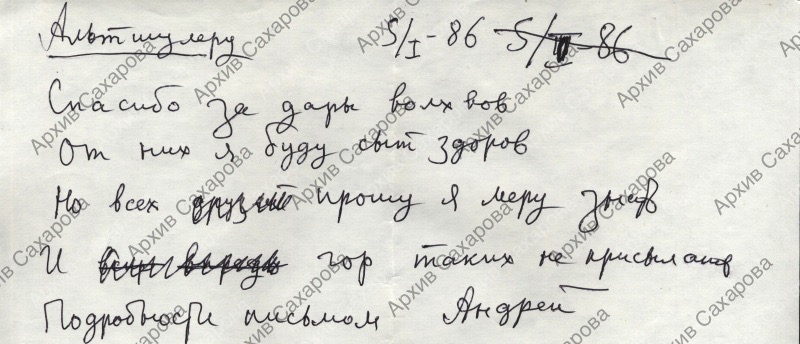 Альтшулеру 5/I-86 5/II-86
Спасибо за дары волхвов
От них я буду сыт здоров
Но всех друзей прошу я меру знать
И гор таких не присылать
Подробности письмом Андрей
Архив Сахарова